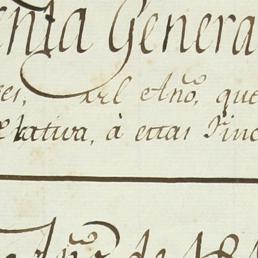 enta Genera
es, del Año, que
elativa, à estas Finc
Año de 181